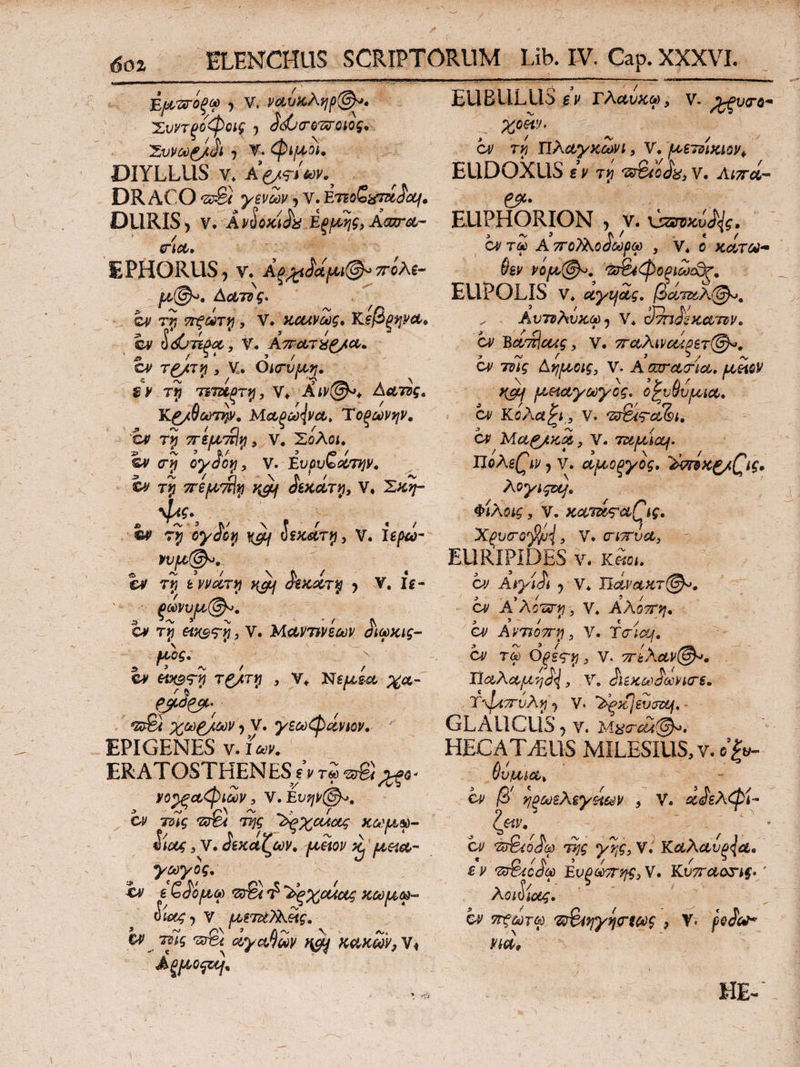 602 ELENCHUS SCRIPTORUM Lib. IV. Cap. XXXVI.
Ἐμπόρῳ, v. ναύκληρος.
Συντρόφοις, δευσοποιός.
Συνωρίδι, v. φιμοί.
DIYLLUS v. Ἀριστίων.
DRACO περὶ γενῶν, v. Ἐπεοβυτάδαι.
DURIS, v. Ἀνδοκίδου Ἑρμῆς, Ἀσπασία.
EPHORUS, v. Ἀρχιδάμιος πόλεμος. Δατός.
ἐν τῇ πρώτῃ, v. καινῶς. Κεβρῆνα.
ἐν δευτέρᾳ, v. Ἀπατούρια.
ἐν τρίτῃ, v. Οἰσύμη.
ἐν τῇ τετάρτῃ, v. Αἶνος. Δατός.
Κριθωτήν. Μαρώνεια. Τορώνην.
ἐν τῇ πέμπτῃ, v. Σόλοι.
ἐν τῇ ὀγδόῃ, v. Εὐρυβάτην.
ἐν τῇ πέμπτῃ καὶ δεκάτῃ, v. Σκῆψις.
ἐν τῇ ὀγδόῃ καὶ δεκάτῃ, v. Ἱερώνυμος.
ἐν τῇ ἐννάτῃ καὶ δεκάτῃ, v. Ἱερώνυμος.
ἐν τῇ εἰκοστῇ, v. Μαντινέων διωκισμός.
ἐν εἰκοστῇ τρίτῃ, v. Νεμέα χαράδρα.
περὶ χωρίων, v. γεωφάνιον.
EPIGENES v. Ἴων.
ERATOSTHENES ἐν τῷ περὶ χρονογραφιῶν, v. Εὔηνος.
ἐν τοῖς περὶ τῆς ἀρχαίας κωμῳδίας, v. δεκάζων. μεῖον καὶ μειαγωγός.
ἐν ἑβδόμῳ περὶ τ. ἀρχαίας κωμῳδίας, v. μεταλλεῖς.
ἐν τοῖς περὶ ἀγαθῶν καὶ κακῶν, v. Ἁρμοσταί.
EUBULUS ἐν Γλαύκῳ, v. χρυσοχοεῖν.
ἐν τῇ Πλαγκῶνι, v. μετοίκιον.
EUDOXUS ἐν τῇ περιόδου, v. Λιπάρα.
EUPHORION, v. Ὑπποκύδης.
ἐν τῷ Ἀπολλοδώρῳ, v. ὁ κάτωθεν νόμος. περιφοριῶδξ.
EUPOLIS v. ἀγυιάς. βάταλος.
Αὐτολύκῳ, v. ἐπιδέκατον.
ἐν Βάπταις, v. παλιναίρετος.
ἐν τοῖς Δήμοις, v. Ἀσπασία. μεῖον
καὶ μειαγωγός. ὀξυθύμια.
ἐν Κόλαξι, v. περιστάτοι.
ἐν Μαρικᾷ, v. ταμίαι.
Πόλεσιν, v. ἀμοργός. ἀπόκρισις.
λογισταί.
Φίλοις, v. κατάστασις.
Χρυσογένει, v. σιπύα,
EURIPIDES v. Κεῖοι.
ἐν Αἰγίδι, v. Πάνακτος.
ἐν Ἀλόπῃ, v. Ἀλόπη.
ἐν Ἀντιόπῃ, v. Ὑσίαι.
ἐν τῷ Ὀρέστῃ, v. πέλανος.
Παλαμήδει, v. διεκωδώνισε.
Ὑψιπύλῃ, v. ἀρκτεῦσαι.
GLAUCUS, v. Μουσαῖος.
HECATÆUS MILESIUS, v. ὀξυθύμια,
ἐν β' ἡρωελεγείων, v. ἀδελφίζειν.
ἐν περιόδῳ τῆς γῆς, v. Καλαυρία.
ἐν περιόδῳ Εὐρώπης, v. Κύπασσις.
Λοιδίας.
ἐν πρώτῳ περιηγήσεως, v. ῥοδωνιά.
HE-